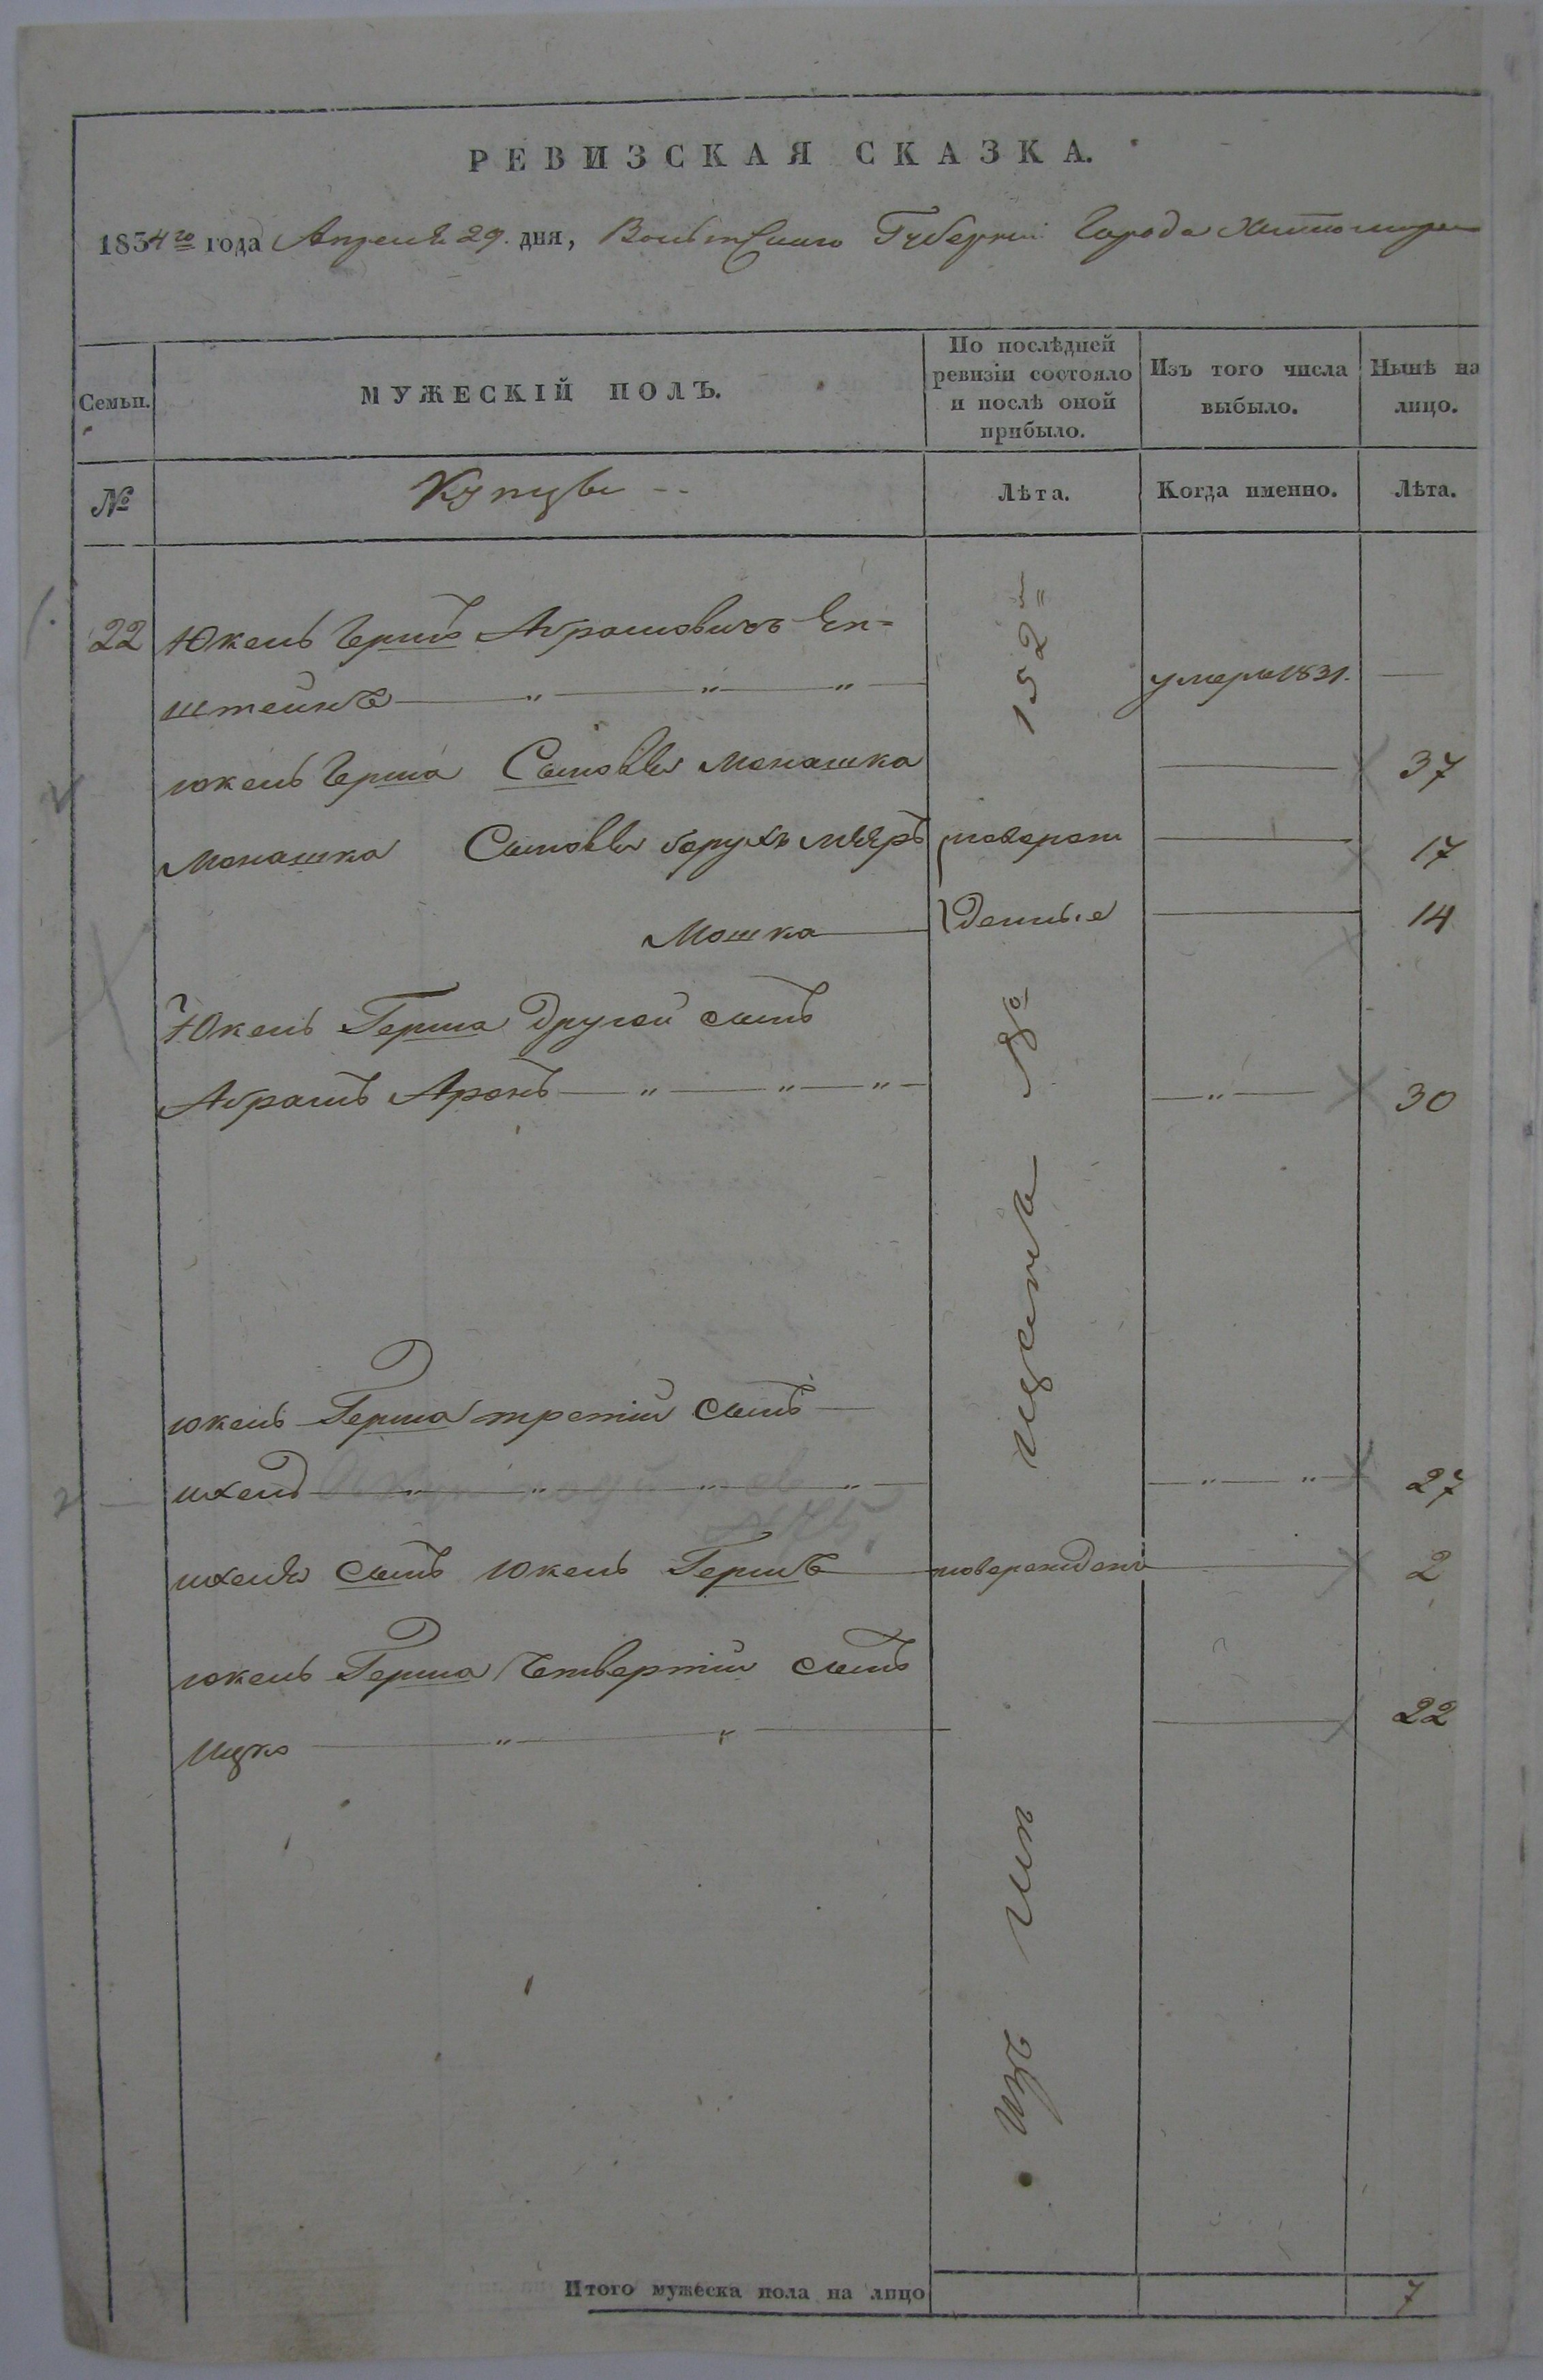 РЕВИЗСКАЯ СКАЗКА.
1834го года Апреля 29. дня, Волынской Губернии Города Житомира
Семьи.
МУЖЕСКІЙ ПОЛЪ.
По послѣдней ревизіи состояло и послѣ оной прибыло.
Изъ того числа выбыло.
Нынѣ на лицо.
№
Купцы
Лѣта.
Когда именно.
Лѣта.
22 Юкель Гершъ Абрамовичъ Еп=
штейнъ — " — " — " — умеръ 1831. —
Юкель Герша Сыновья Монашка — 37
Монашка Сыновья Борухъ Мееръ — 17
Мошка — 14
новорожденные
Юкель Герша другой сынъ
Абрамъ Аронъ — " — " — " — — " — 30
юкель Герша третій сынъ —
ихель — " — " — " — " — — " — " — 27
ихеля сынъ Юкель Гершъ — новорожденъ — 2
юкель Герша Четвертій сынъ
Ицко — " — " — — 22
изъ мещанъ № 152
Итого мужеска пола на лицо 7